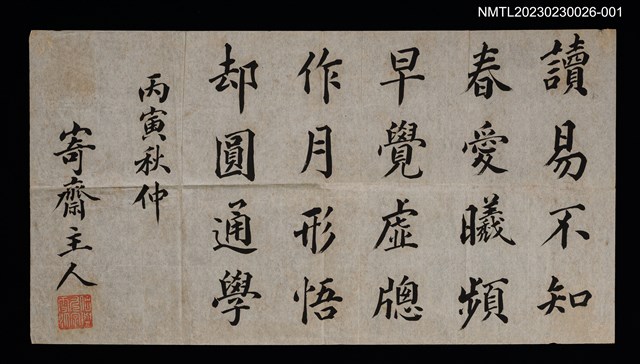 NMTL20230230026-001
讀易不知
春愛曦頻
早覺虛牕
作月形悟
却圓通學
丙寅秋仲
寄齋主人